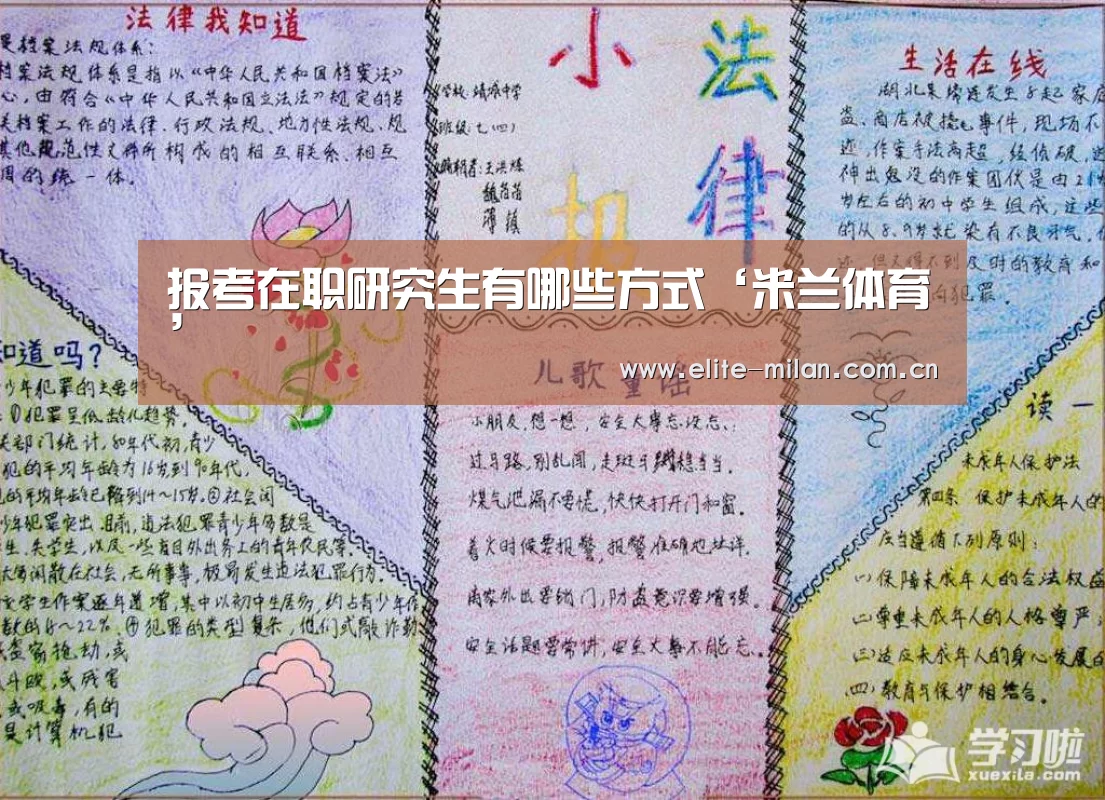 法律我知道
是档案法规体系:
档案法规体系是指以《中华人民共和国档案法》
心,由符合《中华人民共和国立法法》规定的若
关档案工作的法律、行政法规、地方性法规、规
其他规范性文件所构成的相互联系、相互
周的统一体。
小
法
报
律
学校:靖
中学
班级:七(四)
编辑者:王洪
生活在线
湖北某
连发生8起家庭
盗、商店被
事件,现场不
迹,作案手法高超,经侦破,
神出鬼没的作案团伙是由21
岁左右的初中学生组成,这些
的从8、9岁就染有不良习气,
及时的教育和
犯罪。
报考在职研究生有哪些方式‘米兰体育
’
www.elite-milan.com.cn
知道吗?
少年犯罪的主要特
:①犯罪呈低龄化趋势。
关部门统计,80年代初,青少
犯的平均年龄为16岁到90年代,
的平均年龄已
到14~15岁。②社会闲
少年犯罪突出 目前,违法犯罪青少年多数是
生、失学生,以及一些盲目外出务工的青年农民等。
大多闲散在社会,无所事事,极易发生违法犯罪行为。
学生作案逐年递增,其中以初中生居多,约占青少年作
数的18~22%。④犯罪的类型复杂,他们式敲诈勒
盗窃抢劫,或
斗殴,或残害
或吸毒,有的
是计算机犯
儿歌童谣
小朋友,想一想,安全大事忘没忘。
过马路,别乱闯,走斑马线稳当当。
煤气泄漏不要慌,快快打开门和窗。
着火时候要报警,报警准确地址详。
离家外出要锁门,防盗意识要增强。
安全话题要常讲,安全大事不能忘。
读一
未成年人保护法
第四条 保护未成年人的
应当遵循下列原则:
(一)保障未成年人的合法权益
(二)尊重未成年人的人格尊严;
(三)适应未成年人的身心发展的
(四)教育与保护相结合。
学习啦
xuexila.com